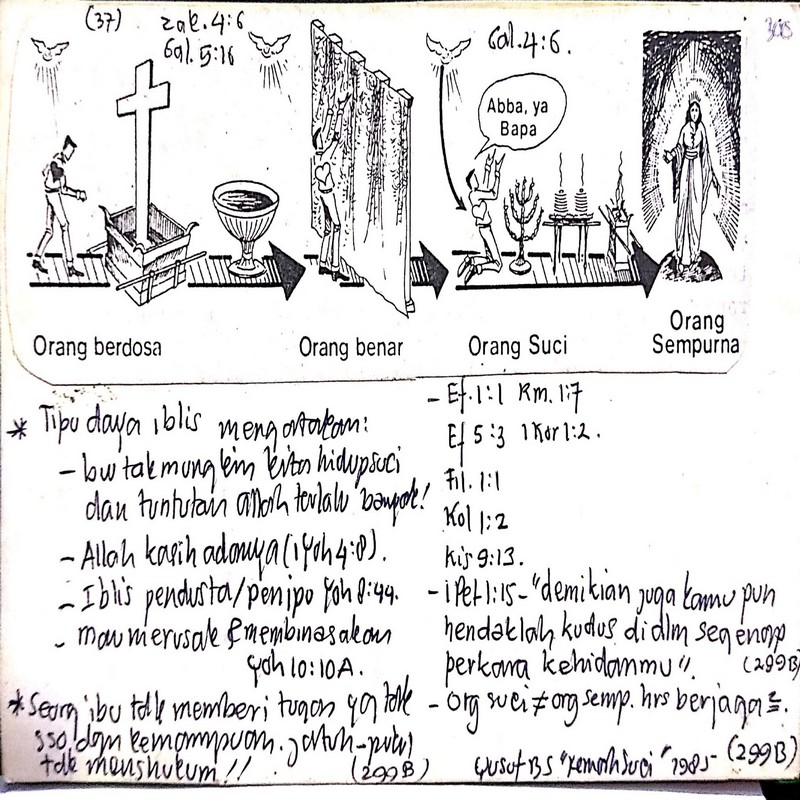 (37) zak. 4:6
Gal. 5:16
Gal. 4:6.
Abba, ya
Bapa
Orang berdosa
Orang benar
Orang Suci
Orang
Sempurna
* Tipu daya iblis mengatakan:
- bw tak mungkin kita hidup suci
dan tuntutan Allah terlalu banyak!
- Allah kasih adanya (1 Yoh 4:8).
- Iblis pendusta/penipu Yoh 8:44.
- mau merusak & membinasakan
Yoh 10:10A.
* Seorg ibu tdk memberi tugas yg tdk
sso. dgn kemampuan. jatuh-pukul
tdk menghukum!! (299B)
- Ef. 1:1 Rm. 1:7
Ef 5:3 1 Kor 1:2.
Fil. 1:1
Kol 1:2
Kis 9:13.
- 1 Pet 1:15 - "demikian juga kamu pun
hendaklah kudus didlm segenap
perkara kehidupanmu". (299B)
- org suci ≠ org semp. hrs berjaga².
Yusuf BS "Kemah Suci" 1985 - (299B)